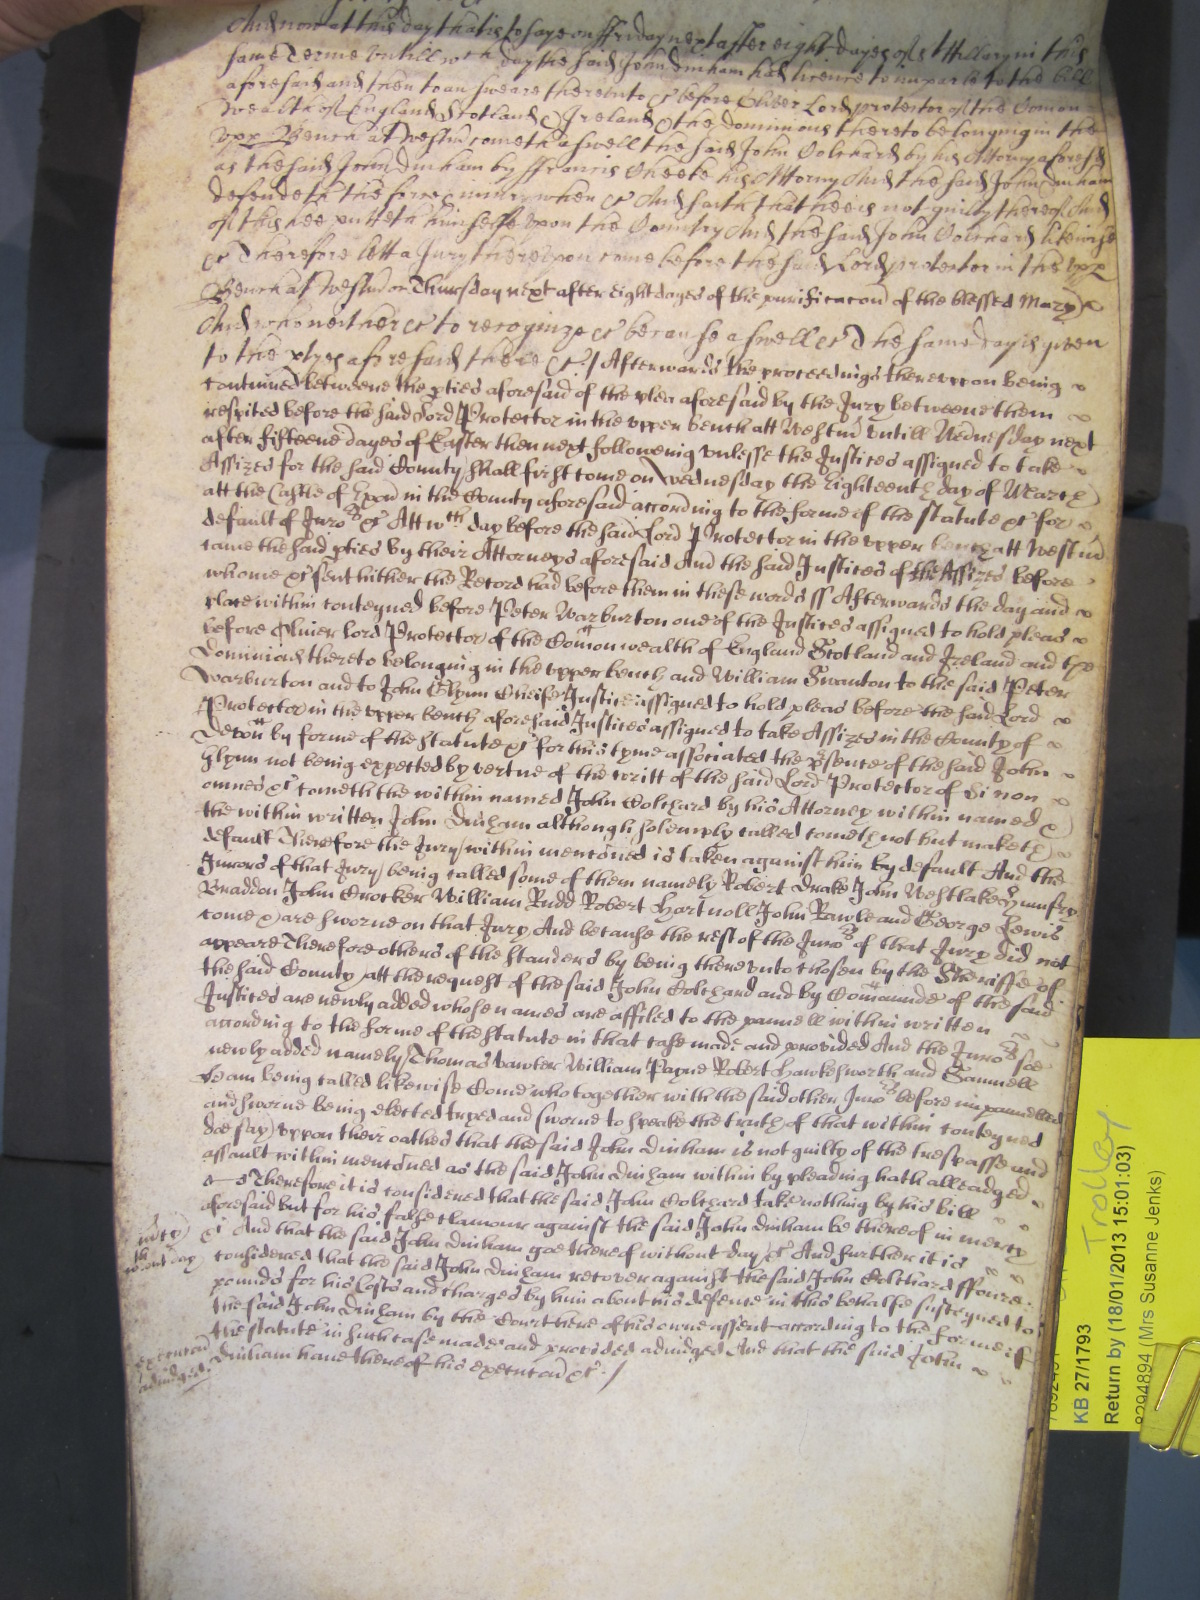 And now at this day that is to say on ffriday next after eight dayes of St Hillary in this
same Terme untill wch day the said John Dinham had licence to imparle to the bill
aforesaid and then to answeare thereunto &c before Oliver Lord protector of the Comon
wealth of England Scotland & Ireland & the dominions thereto belonging in the
vpp Bench at Westm cometh aswell the said John Colehard by his Attorny aforesd
as the said John Dinham by ffrancis Cheeke his Attorny And the said John Dinham
defendeth the force & iniury when &c And saith that hee is not guilty thereof And
of this hee putteth himselfe vpon the Countrey And the said John Colehard likewise
&c Therefore lett a Jury thereupon come before the said Lord protector in the vpp
Bench at Westm on Thursday next after eight dayes of the purificacon of the blessed Mary
And who neither &c to recognize &c because aswell &c The same day is given
to the ptyes aforesaid there &c / Afterwards the proceedings therevpon being
continued betweene the pties aforesaid of the plea aforesaid by the Jury betweene them
respited before the said Lord Protector in the vpper bench att Westm vntill Wednesday next
after fifteene dayes of Easter then next following vnlesse the Justices assigned to take
Assizes for the said County shall first come on Wednesday the Eighteenth day of March
att the Castle of Exon in the County aforesaid according to the forme of the statute &c for
default of Juros &c Att wch day before the said Lord Protector in the vpper bench att Westm
came the said pties by their Attorneys aforesaid And the said Justices of the Assizes before
whome &c sent hither the Record had before them in these words ss Afterwards the day and
place within conteyned before Peter Warburton one of the Justices assigned to hold pleas
before Oliver lord Protector of the Comonwealth of England Scotland and Ireland and the
Dominions thereto belonging in the vpper bench and William Swanton to the said Peter
Warburton and to John Glynn Cheife Justice assigned to hold pleas before the said Lord
Protector in the vpper bench aforesaid Justices assigned to take Assizes in the County of
Devon by forme of the statute &c for this tyme associated the psence of the said John
Glynn not being expected by vertue of the writt of the said Lord Protector of Si non
omnes &c cometh the within named John Colehard by his Attorney within named
the within written John Dinham although solemply called cometh not but maketh
default Therefore the Jury within mentioned is taken against him by default And the
Jurors of that Jury being called some of them namely Robert Drake John Westlake Humfry
Braddon John Crocker William Rudd Robert Hartnoll John Rawle and George Lewis
come and are sworne on that Jury And because the rest of the Juros of that Jury did not
appeare Therefore others of the standers by being therevnto chosen by the Sheriffe of
the said County att the request of the said John Colehard and by Comaunde of the said
Justices are newly added whose names are affiled to the pannell within written
according to the forme of the statute in that case made and provided And the Juros soe
newly added namely Thomas Vawter William Payne Robert Hawkesworth and Samuell
being called likewise Come who together with the said other Juros before impannelled
and sworne being elected tryed and sworne to speake the truth of that within conteyned
doe say vppon their oathes that the said John Dinham is not guilty of the trespasse and
assault within mentioned as the said John Dinham within by pleading hath alleadged
Therefore it is considered that the said John Colehard take nothing by his bill
aforesaid but for his false clamour against the said John Dinham be thereof in mercy
&c And that the said John Dinham goe thereof without day &c And further it is
considered that the said John Dinham recover against the said John Colehard ffoure
pounds for his Costs and charges by him about his defence in this behalfe susteyned to
the said John Dinham by the Court here of his owne assent according to the forme of
the statute in such case made and provided adiudged And that the said John
Dinham have thereof his execucon &c /
execucon
adiudged
Trolley
KB 27/1793
Return by (18/01/2013 15:01:03)
8294894 (Mrs Susanne Jenks)